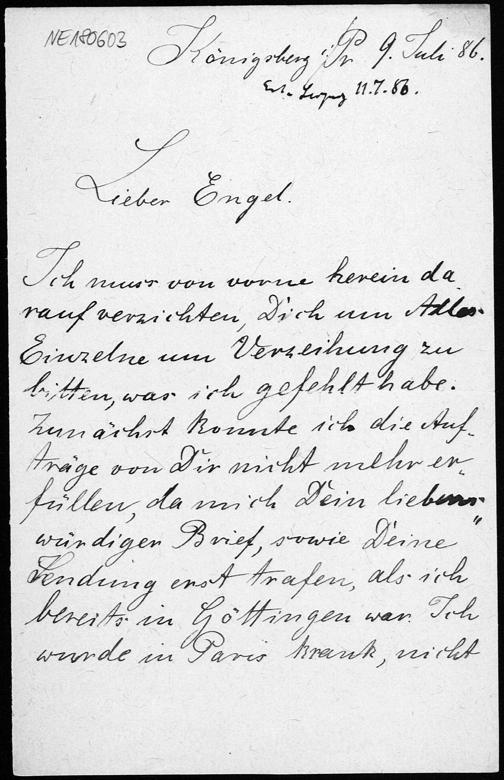 NE180603
Königsberg i/Pr 9. Juli 86.
11.7.86.
Lieber Engel.
Ich muss von vorne herein da
rauf verzichten, Dich um Alles
Einzelne um Verzeihung zu
bitten, was ich gefehlt habe.
Zunächst konnte ich die Auf-
träge von Dir nicht mehr er-
füllen, da mich Dein liebens
würdiger Brief, sowie Deine "
Sendung erst trafen, als ich
bereits in Göttingen war. Ich
wurde in Paris krank, nicht